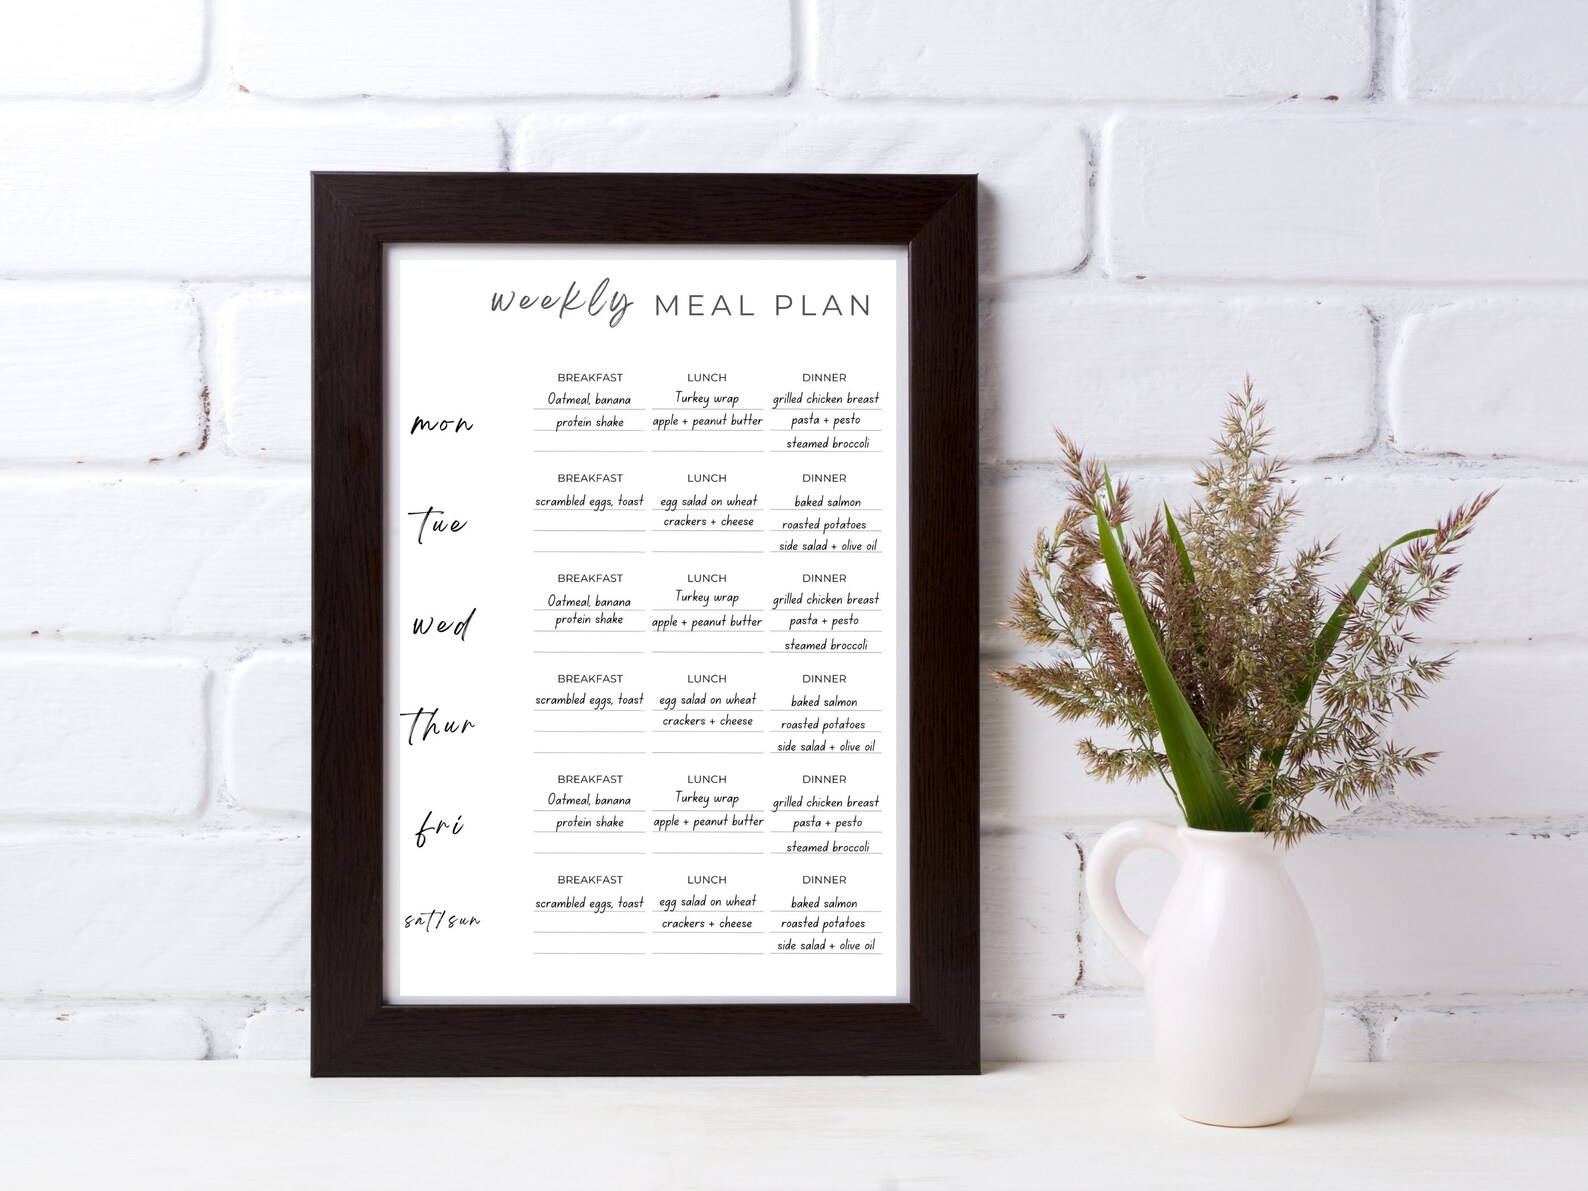 weekly MEAL PLAN
BREAKFAST LUNCH DINNER
Oatmeal, banana Turkey wrap grilled chicken breast
mon protein shake apple + peanut butter pasta + pesto
steamed broccoli
BREAKFAST LUNCH DINNER
scrambled eggs, toast egg salad on wheat baked salmon
Tue crackers + cheese roasted potatoes
side salad + olive oil
BREAKFAST LUNCH DINNER
Oatmeal, banana Turkey wrap grilled chicken breast
wed protein shake apple + peanut butter pasta + pesto
steamed broccoli
BREAKFAST LUNCH DINNER
scrambled eggs, toast egg salad on wheat baked salmon
Thur crackers + cheese roasted potatoes
side salad + olive oil
BREAKFAST LUNCH DINNER
Oatmeal, banana Turkey wrap grilled chicken breast
fri protein shake apple + peanut butter pasta + pesto
steamed broccoli
BREAKFAST LUNCH DINNER
scrambled eggs, toast egg salad on wheat baked salmon
sat/sun crackers + cheese roasted potatoes
side salad + olive oil